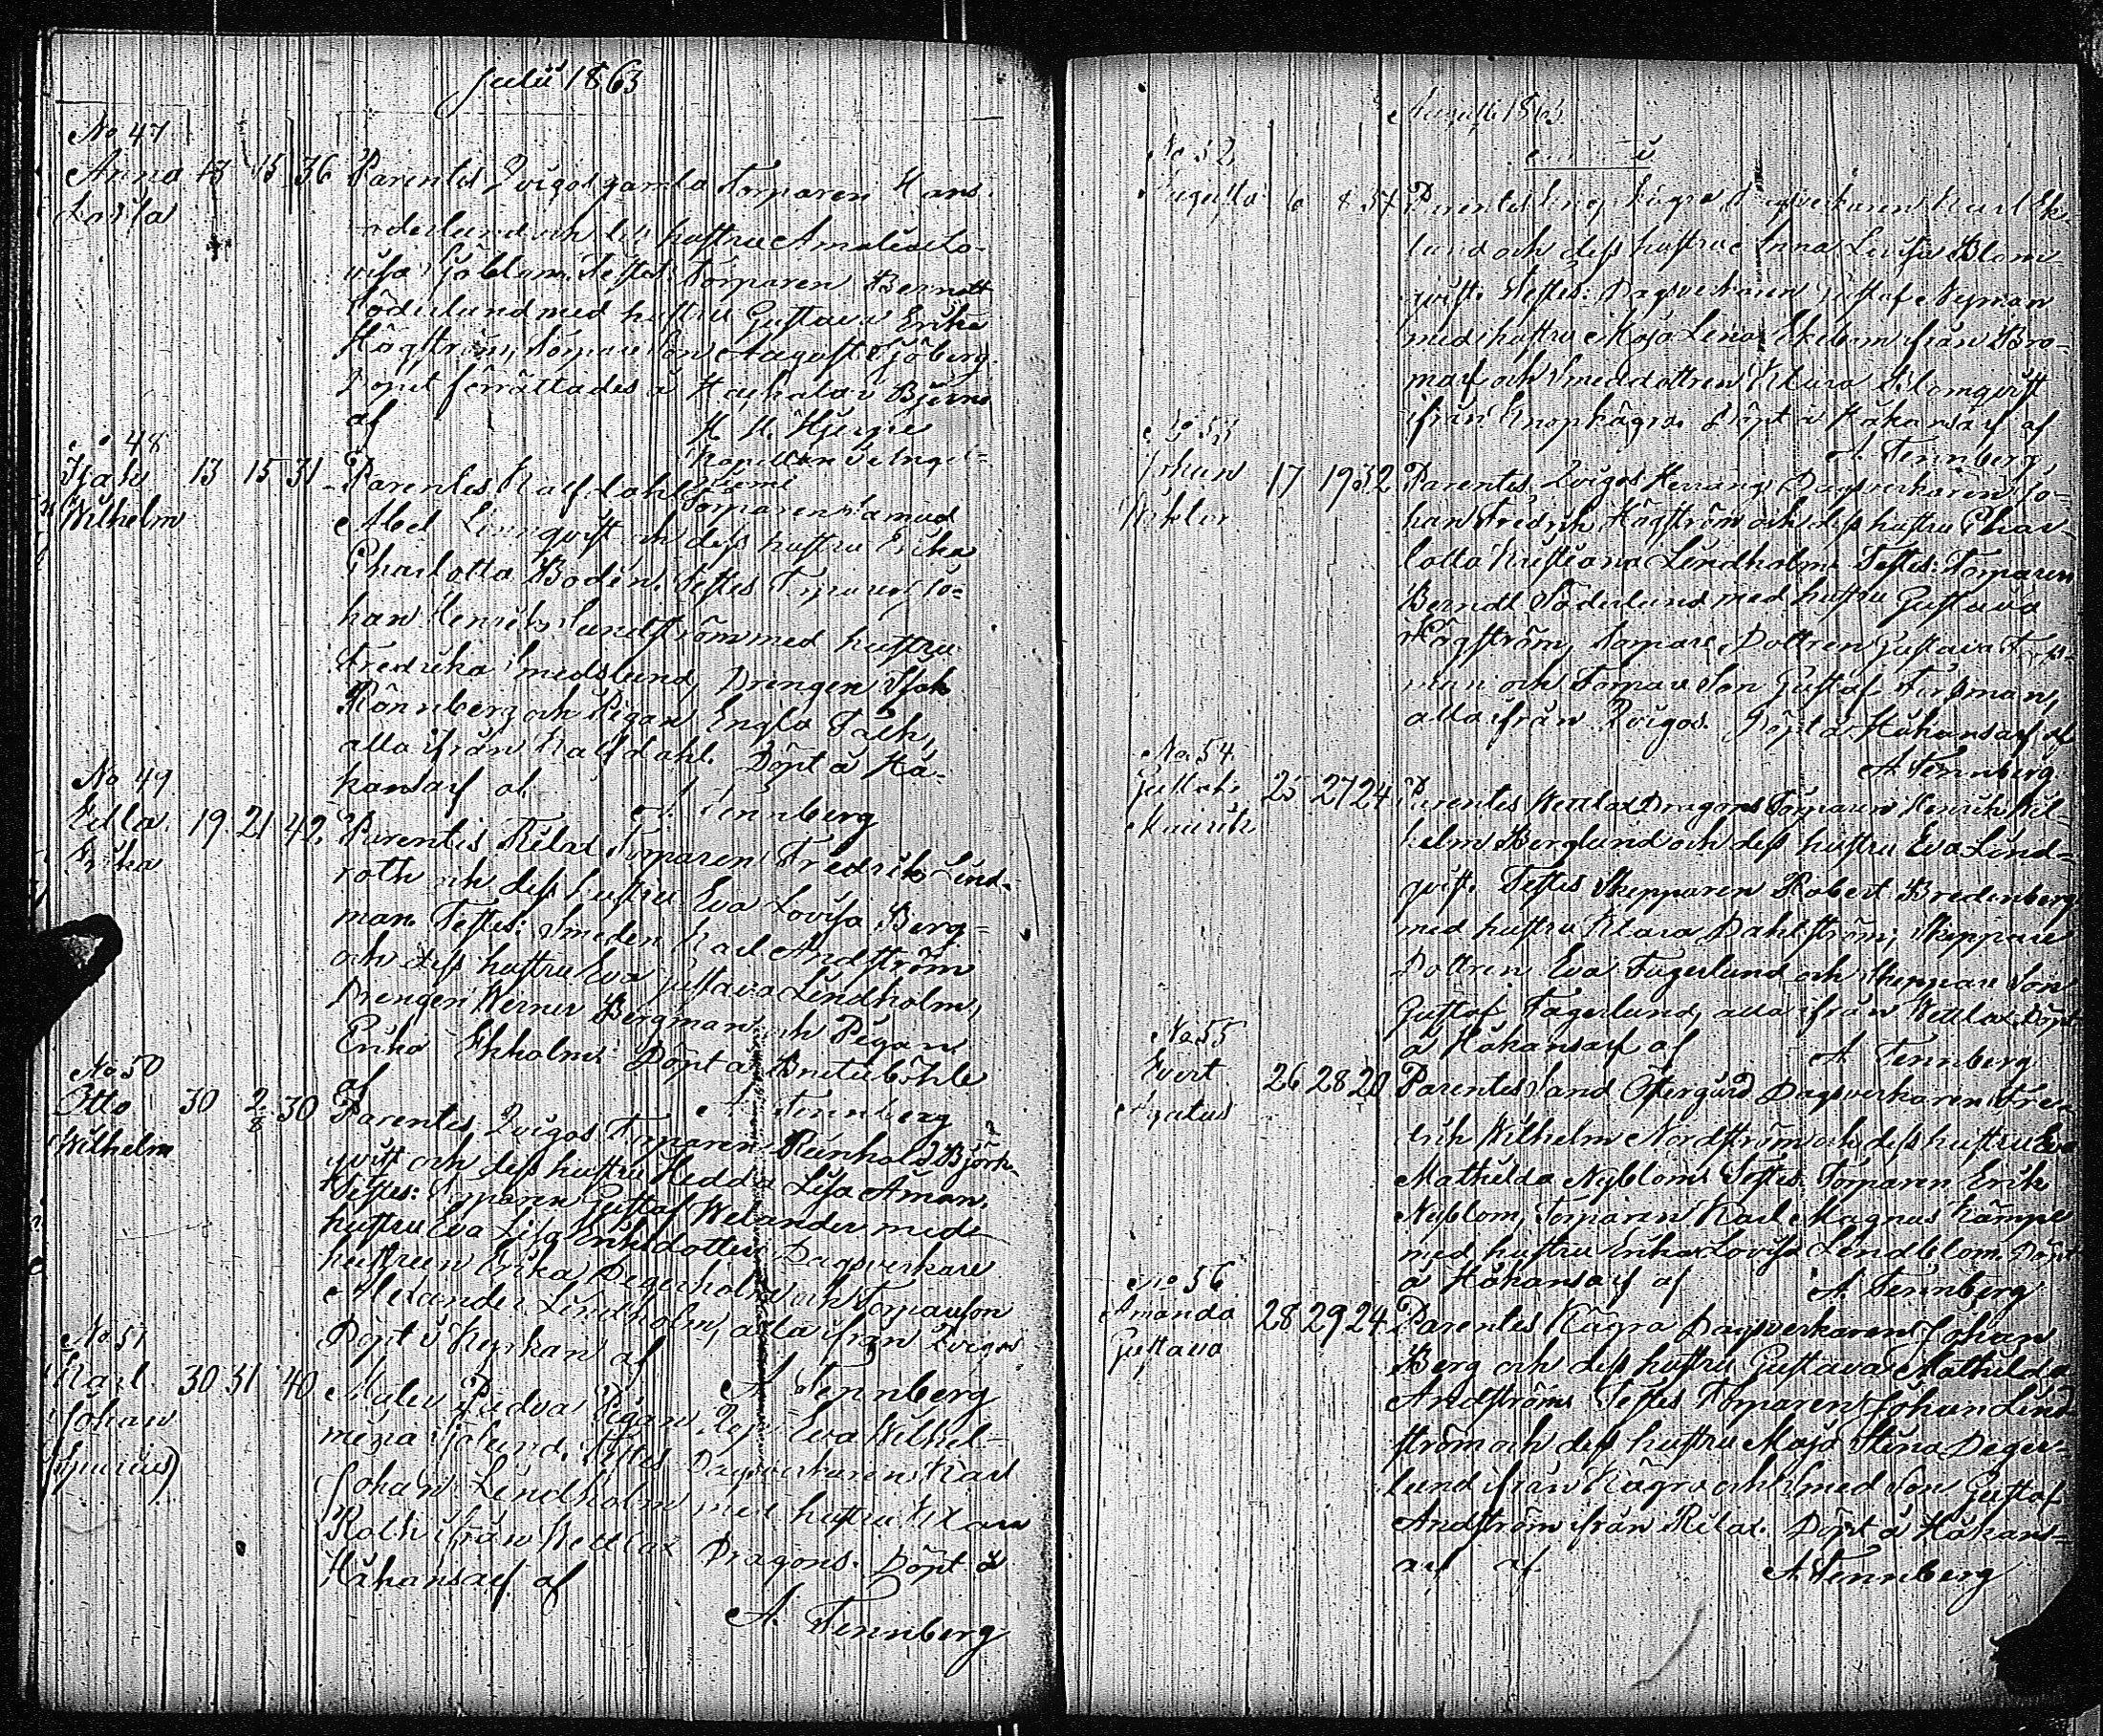 Julii 1863
No 47
Anna 13 15 36 Parentes Qvigos gamla Torparen Hans
Lovisa
öderlund och dess hustru Amalia Lo-
visa Sjöblom. Testes: Torparen Berndt
Söderlund med hustru Gustava Erika
Högström, Torpare Son August Sjöberg.
Dopet förrättades å
af
Kapellan i
48
Isak 13 15 31 Parentes Kalfdahl Torparen
Wilhelm
Abel Linnqvist och dess hustru Erika
Charlotta Bodén. Testes Torparen Jo-
han Henrik Sundström med hustru
Fredrika Smedslund, Drengen Isak
Rönnberg och Pigan Engla Falk,
alla ifrån Kalfdahl. Döpt å Hå-
kansarf af A. Tennberg
No 49
19 21 42 Parentes Rilax Torparen Fredrik Lind-
Erika
roth och dess hustru Eva Lovisa Berg-
man. Testes: Smeden Karl Andström
och dess hustru Eva Gustava Lindholm,
Drengen Werner Bergman och Pigan
Erika Ekholm. Döpt å
af A. Tennberg
No 50
Otto 30 2/8 30 Parentes Qvigos Torparen Reinhold Björk-
Wilhelm
qvist och dess hustru Hedda Lisa Åman.
Testes: Torparen Gustaf Welander med
hustru Eva Lisa Eriksdotter Dagsverkare
hustrun Erika Degerholm och Torpareson
Alexander Lindholm, alla ifrån Qvigos
Döpt i Kyrkan af
A. Tennberg
No 51
Karl 30 31 40 Mater Padva Pigan Eva Wilhel-
Johan
mina Sjölund. Testes Dagsverkaren Karl
(Spurius)
Johan Lindholm med hustru Klara
Roth ifrån Wettlax Dragons. Döpt å
Håkansarf af
A. Tennberg
Augusti 1863
No 52
Augusta 6 8 37 Parentes Knopkägra Dagsverkaren Karl Ek-
lund och dess hustru Anna Lovisa Blom-
qvist. Testes: Dagsverkaren Gustaf Nyman
med hustru Maja Lena Ekebom ifrån Bro-
marf och Smeddottren Klara Blomqvist
ifrån Knopkägra. Döpt å Håkansarf af
A. Tennberg
No 53
Johan 17 19 32 Parentes Qvigos Herrang Dagsverkaren Jo-
Wiktor
han Fredrik Högström och dess hustru Char-
lotta Kristiana Lindholm. Testes: Torparen
Berndt Söderlund med hustru Gustava
Högström, Torpare Dottren Gustava
och Torpare Son Gustaf Forsman,
alla ifrån Qvigos. Döpt å Håkansarf af
A. Tennberg
No 54
25 27 24 Parentes Wettlax Dragons Torparen Henrik Wil-
helm Berglund och dess hustru Eva Lind-
qvist. Testes Skepparen Robert Bredenberg
med hustru Klara Dahlström, Skeppare
Dottren Eva Fagerlund och Skeppare Son
Gustaf Fagerlund, alla ifrån Wettlax. Döpt
å Håkansarf af A. Tennberg
No 55
Evert 26 28 20 Parentes Sand Östergård Dagsverkaren Fre-
Agatus
drik Wilhelm Nordström och dess hustru Eva
Mathilda Nyblom. Testes: Torparen Erik
Nyblom, Torparen Karl Magnus Kämpe
med hustru Erika Lovisa Lindblom. Döpt
å Håkansarf af A. Tennberg
No 56
Amanda 28 29 24 Parentes Kägra Dagsverkaren Johan
Gustava
Berg och dess hustru Gustava Mathilda
Andström. Testes Torparen Johan Lind
ström och dess hustru Maja Stina Deger-
lund ifrån Kägra och Smed Son Gustaf
Andström ifrån Rilax. Döpt å Håkans-
arf af A. Tennberg